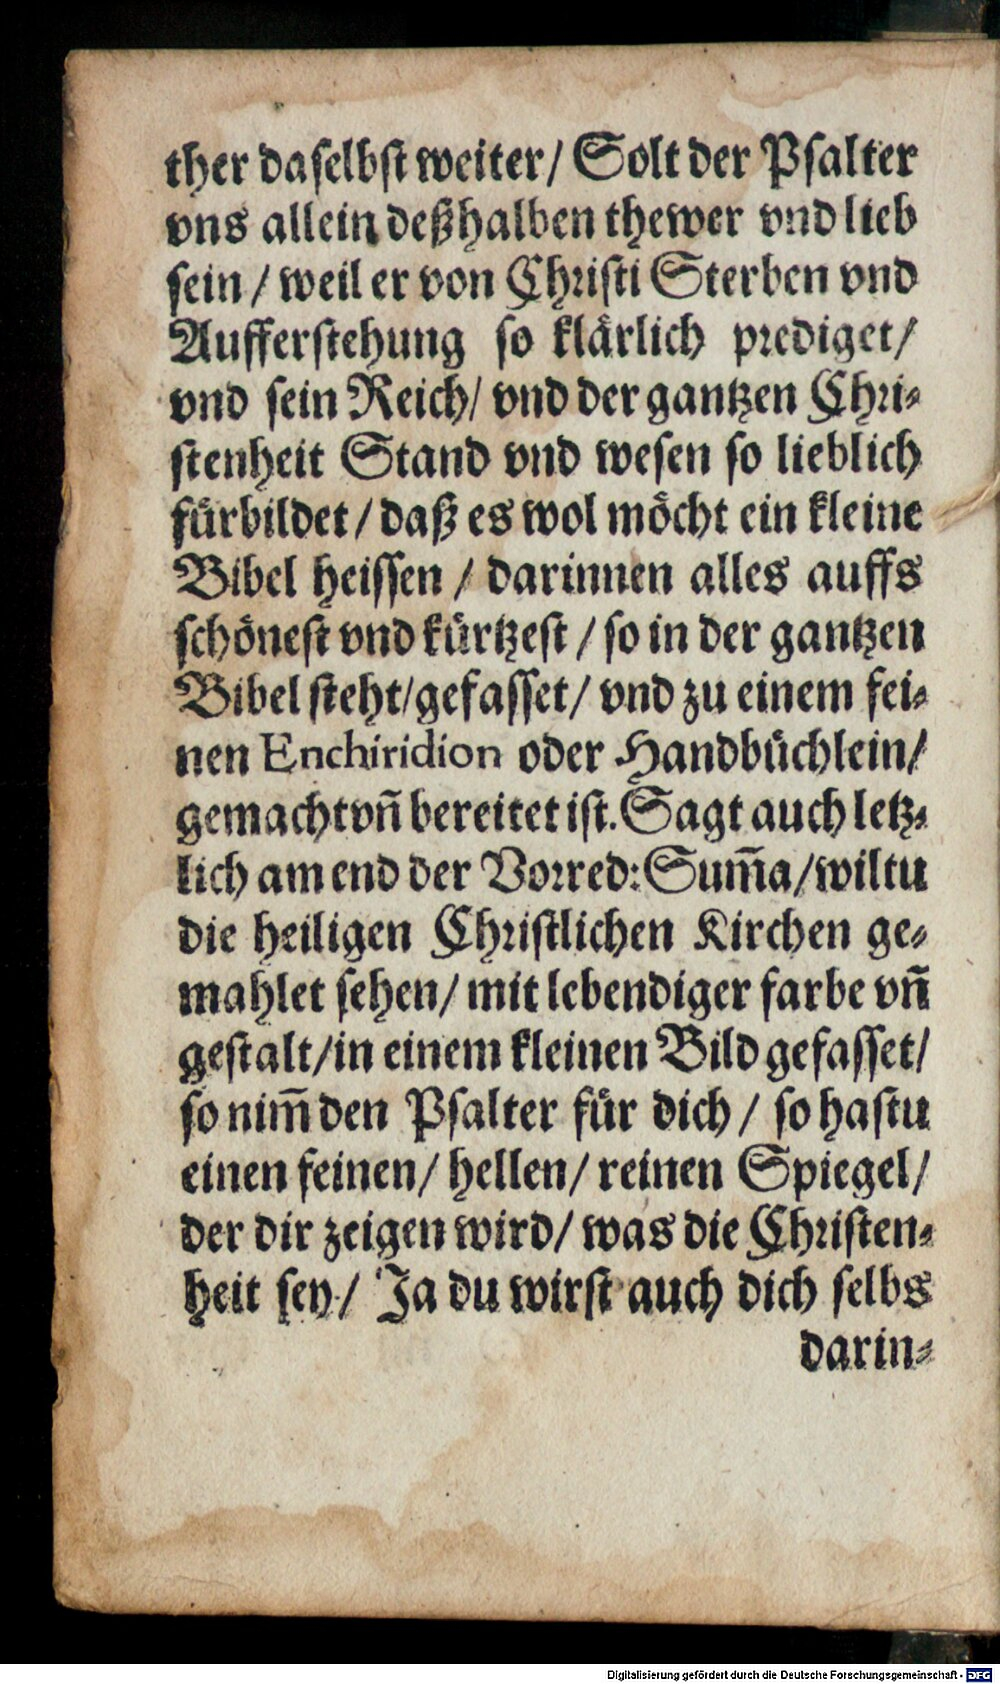 ther daselbst weiter/ Solt der Psalter
vns allein deßhalben thewer vnd lieb
sein / weil er von Christi Sterben vnd
Aufferstehung so klärlich prediget/
vnd sein Reich/ vnd der gantzen Chri-
stenheit Stand vnd wesen so lieblich
fürbildet / daß es wol möcht ein kleine
Bibel heissen / darinnen alles auffs
schönest vnd kürtzest / so in der gantzen
Bibel steht/gefasset/ vnd zu einem fei-
nen Enchiridion oder Handbüchlein/
gemacht vn̄ bereitet ist. Sagt auch letz-
lich am end der Vorred: Sum̄a/wiltu
die heiligen Christlichen Kirchen ge-
mahlet sehen/ mit lebendiger farbe vn̄
gestalt/in einem kleinen Bild gefasset/
so nim̄ den Psalter für dich / so hastu
einen feinen/ hellen/ reinen Spiegel/
der dir zeigen wird/ was die Christen-
heit sey/ Ja du wirst auch dich selbs
darin-
Digitalisierung gefördert durch die Deutsche Forschungsgemeinschaft - DFG